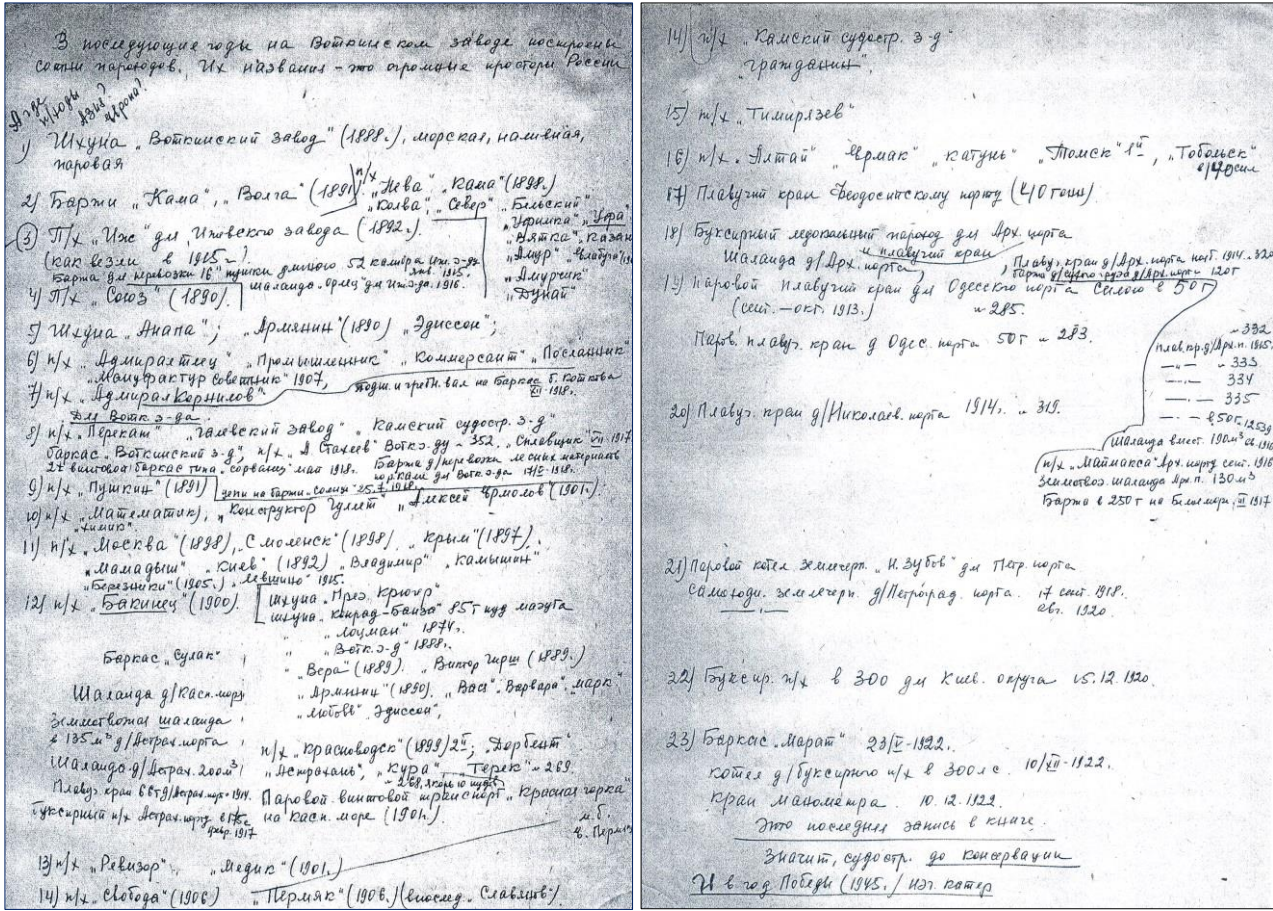 В последующие годы на Воткинском заводе построены
сотни пароходов. Их названия - это огромные просторы России
А где п/ходы Азия? Европа?
1) Шхуна „Воткинский завод" (1888г.), морская, наливная,
паровая
2) Баржи „Кама", „Волга" (1891) п/х „Нева" „Кама" (1898.)
„Колва", „Север" „Бельский"
„Уфимка" „Уфа"
„Вятка", Казан
„Амур"
„Амурчик"
„Дунай"
3) П/х „Иж" для Ижевского завода (1892г.)
(как везли в 1915 г?)
Баржа для перевозки 16" пушки длиною 52 калибра Иж. з-да янв. 1915.
шаланда „Орлец" для Иж. з-да. 1916.
4) П/х „Союз" (1890).
5) Шхуна „Анапа"; „Армянин" (1890) „Эдиссон";
6) п/х „Адмиралтеец" „Промышленник" „Коммерсант" „Посланник"
„Мануфактур советник" 1907,
7) п/х „Адмирал Корнилов"
подш. и гребн. вал на баркас б. Коткова XII-1918г.
Для Вотк з-да.
8) п/х „Перекат" „Галевский завод" „Камский судостр. з-д"
баркас „Воткинский з-д", п/х „А. Стахеев" Вотк з-ду ~ 352, „Сплавщик" VII-1917
2х винтовой баркас типа „сорванец" май 1918г. Баржа д/перевозки лесных материалов
по Каме для Вотк. з-да 1918г.
9) п/х „Пушкин" (1891) цепи на баржи „Солнце" 25.7.1918г.
10) п/х „Математик", „Конструктор Гуллет" „Алексей Ермолов" (1901г.)
„Химик"
11) п/х „Москва" (1898), „Смоленск" (1898), „Крым" (1897).
„Мамадыш" „Киев" (1892) „Владимир", „Камышин"
„Березники" (1905г.) „Левшино" 1915.
12) п/х „Бакинец" (1900). шхуна „През. Крюгер"
шхуна „Конрад-Банза" 85т пуд мазута
„ „Лоцман" 1874г.
„ „Вотк. з-д" 1888г.
Баркас „Сулак" „ „Вера" (1889). „Виктор Гирш (1889.)
„Армянин" (1890). „Вася". „Варвара". „Марк"
„Любовь" „Эдиссон",
Шаланда д/Касп. моря
Землеотвозная шаланда
в 135 м³ д/Астрах. порта
п/х „Красноводск" (1899) 2й; „Дербент"
Шаланда д/Астрах. 200 м³ „Астрахань", „Кура", „Терек" ~ 269.
Плавуч. кран д/Астрах. порт 1914.
Паровой винтовой транспорт „Красная горка"
буксирный п/х Астрах. порту 1917
на Касп. море (1901г.)
13) п/х „Ревизор", „Медик" (1901.)
14) п/х „Свобода" (1906) „Пермяк" (1906.) (впослед. Славянв)
14) п/х „Камский судостр. з-д"
„Гражданин"
15) п/х „Тимирязев"
16) п/х „Алтай" „Ермак" „Катунь" „Томск" 1й, „Тобольск"
в 140 сил
17) Плавучий кран Феодоситскому порту (40 тонн)
18) Буксирный ледокольный пароход для Арх. порта
Шаланда д/Арх. порта и плавучий кран
Плавуч. кран д/Арх. порта 1914
Баржа д/сухого груза д/Арх. порта 120т
19) Паровой плавучий кран для Одесского порта силою в 50т
(сент. - окт. 1913.) ~ 285.
Паров. плавуч. кран д Одес. порта 50т ~ 283.
~ 332
плав. кр. д/Арх. п. 1915г.
—"— ~ 333
—"— 334
—"— 335
20) Плавуч. кран д/Николаев. порта 1914г. ~ 319.
Шаланда вмест. 190 м³ 1916
п/х „Маймакса" Арх. порту сент. 1916
Землеотвоз. шаланда Арх. п. 130 м³
Баржа в 250т на Белое море, 1917
21) Паровой котел землечерп. „Н. Зубов" для Петр. порта
самоходн. землечерп. д/Петроград. порта. 17 сент. 1918.
авг. 1920.
22) Буксир. п/х в 300 для Киев. округа 15.12.1920.
23) Баркас „Марат" 23/V-1922.
котел д/буксирного п/х в 300 лс. 10/XII-1922.
кран манометра. 10.12.1922.
Это последняя запись в книге.
Значит, судостр. до консервации
И в год Победы (1945.) изг. катер